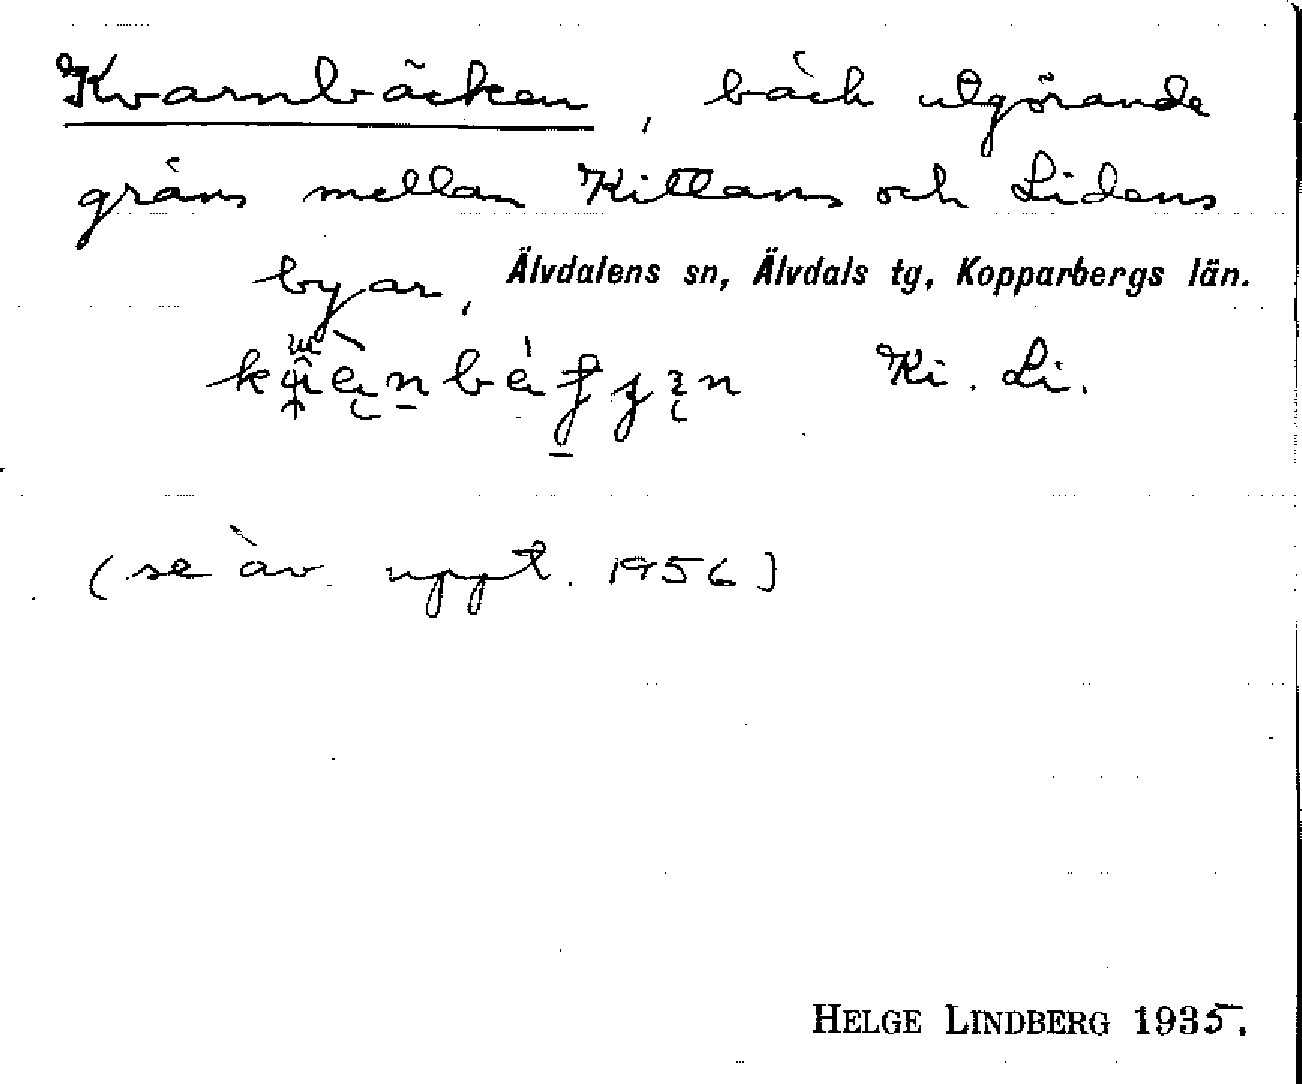 Kvarnbäcken, bäck utgörande
gräns mellan Kittans och Lidens
byar, Älvdalens sn, Älvdals tg, Kopparbergs län.
Ki. Li.
(se äv. uppt. 1956)
HELGE LINDBERG 1935.